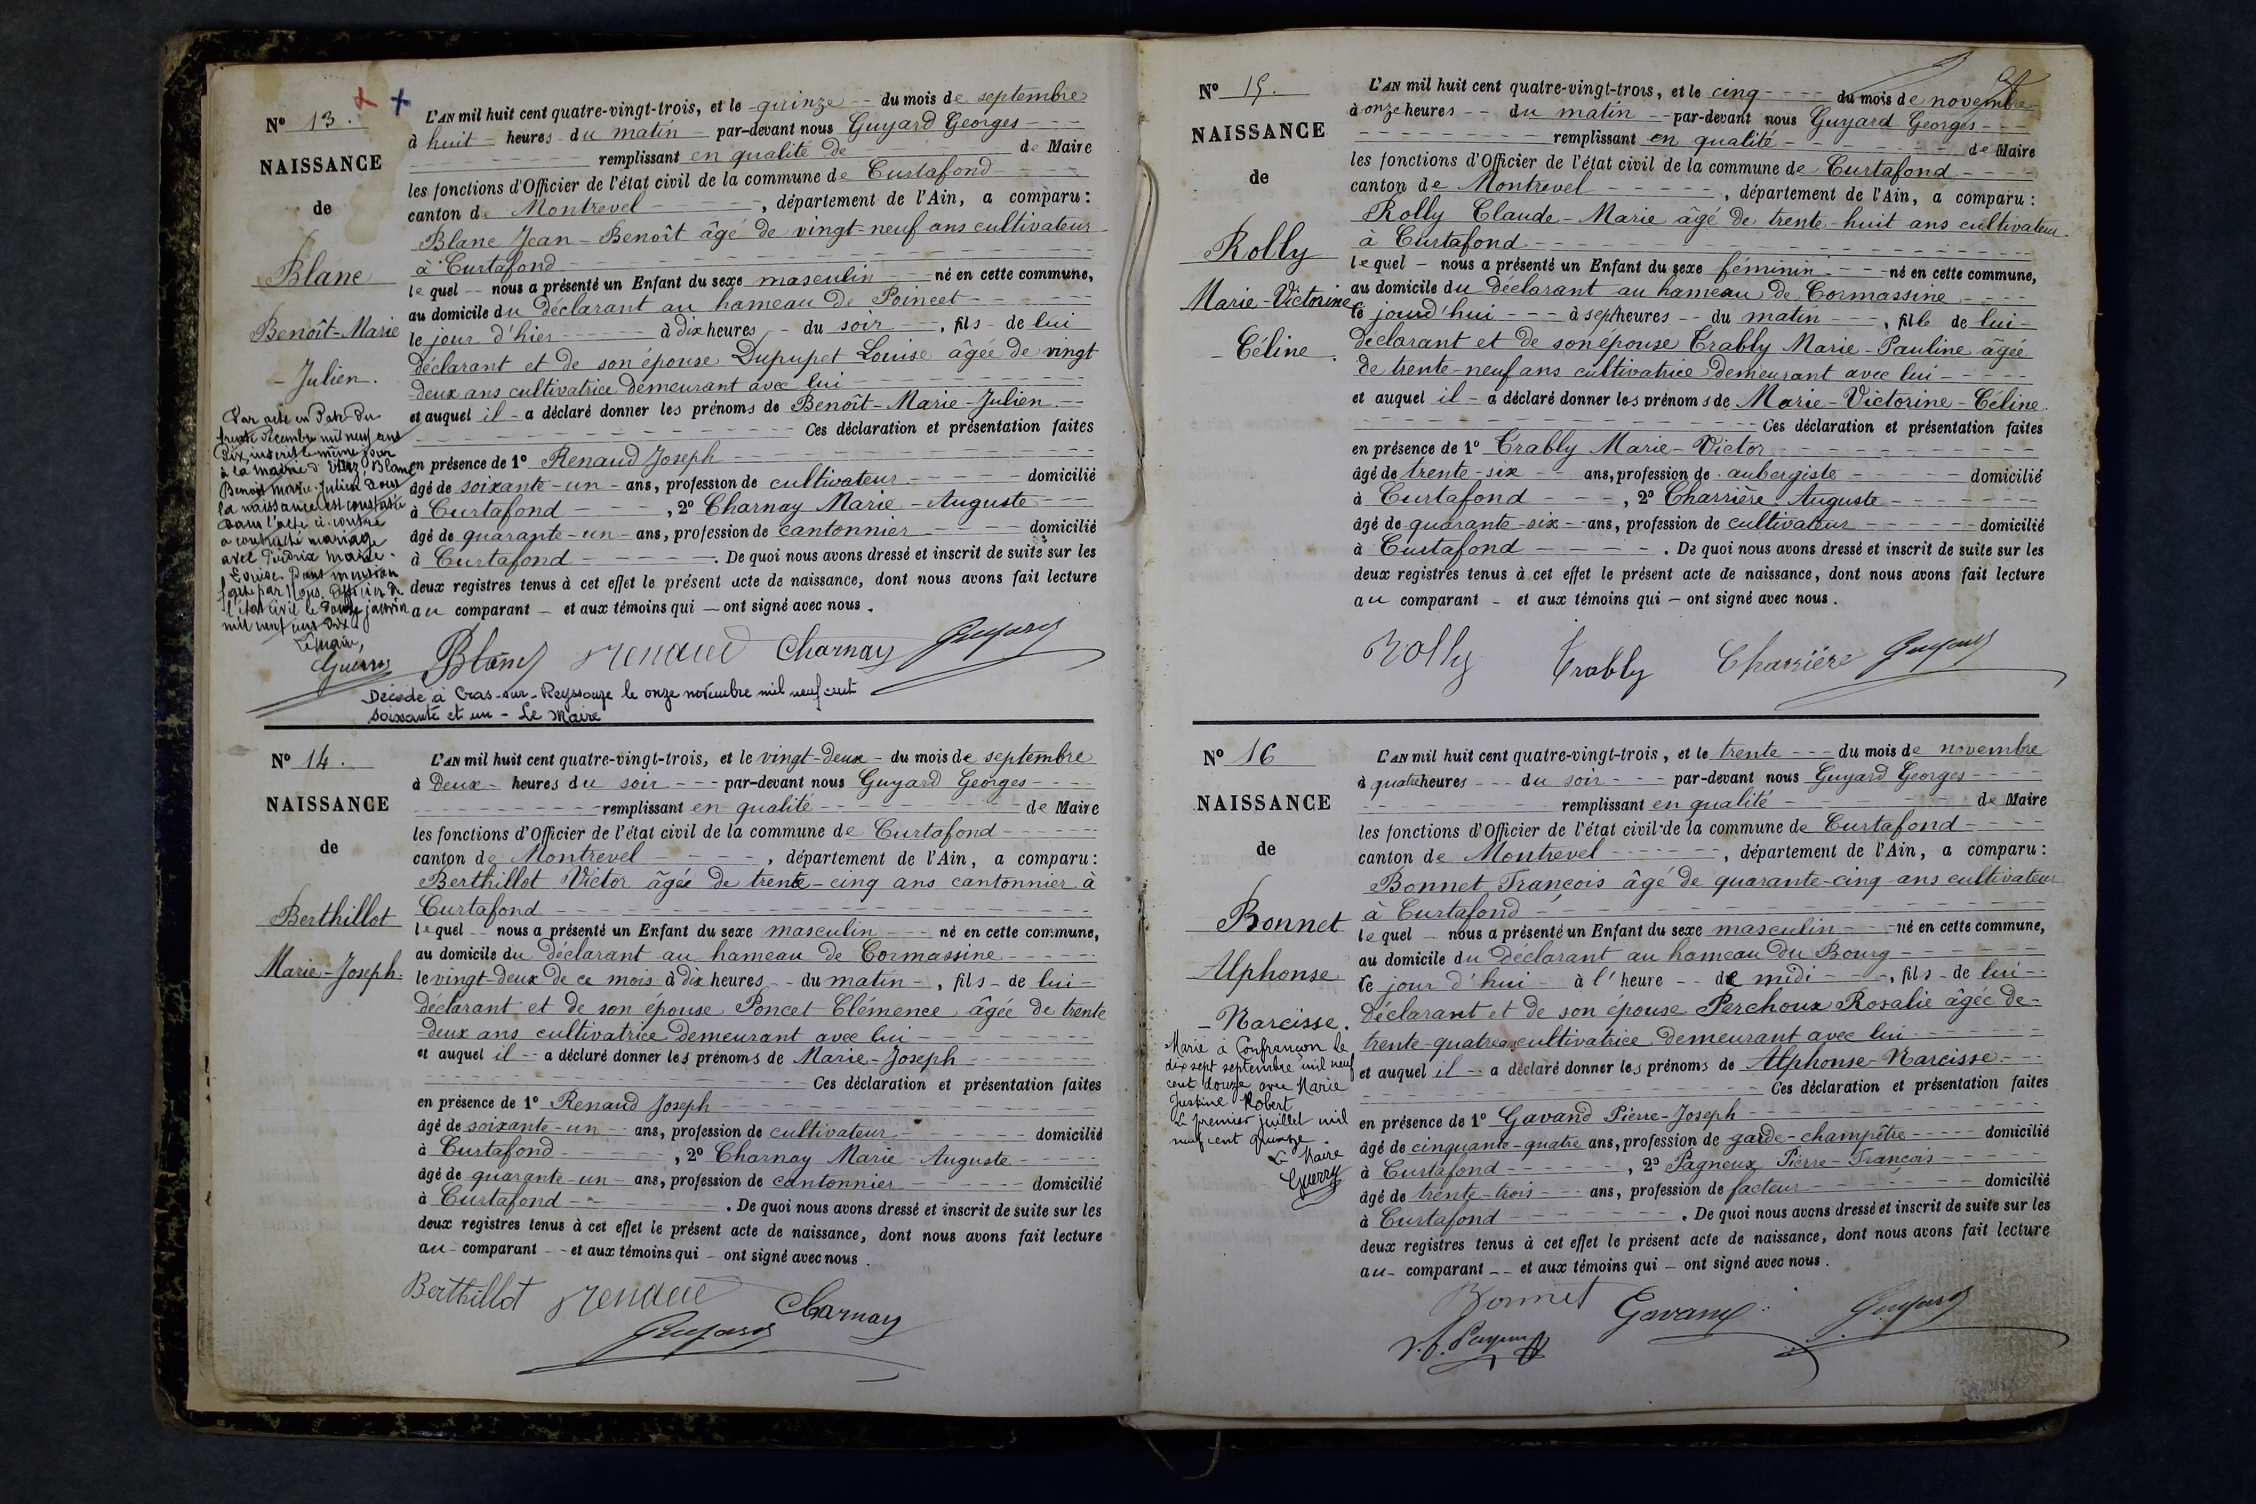 N° 13.
NAISSANCE
de
Blanc
Benoît-Marie
- Julien.
Par acte en date du
trente décembre mil neuf cent
dix, inscrit le même jour
à la mairie d' Blanc
Benoit Marie Julien dont
la naissance est constatée
dans l'acte ci-contre
a contracté mariage
avec Marie-
Louise. Dont mention
faite par Nous, Officier de
l'état civil le douze janvier
mil neuf cent
Le Maire,
L'AN mil huit cent quatre-vingt-trois, et le quinze du mois de septembre
à huit heures du matin par-devant nous Guyard Georges
remplissant en qualité de de Maire
les fonctions d'Officier de l'état civil de la commune de Curtafond
canton de Montrevel, département de l'Ain, a comparu:
Blanc Jean-Benoît âgé de vingt-neuf ans cultivateur
à Curtafond
lequel nous a présenté un Enfant du sexe masculin né en cette commune,
au domicile du déclarant au hameau de Poincet
le jour d'hier à dix heures du soir, fils de lui
déclarant et de son épouse Dupupet Louise âgée de vingt
deux ans cultivatrice demeurant avec lui
et auquel il a déclaré donner les prénoms de Benoît-Marie-Julien
Ces déclaration et présentation faites
en présence de 1° Renaud Joseph
âgé de soixante-un ans, profession de cultivateur domicilié
à Curtafond, 2° Charnay Marie-Auguste
âgé de quarante-un ans, profession de cantonnier domicilié
à Curtafond. De quoi nous avons dressé et inscrit de suite sur les
deux registres tenus à cet effet le présent acte de naissance, dont nous avons fait lecture
au comparant et aux témoins qui ont signé avec nous.
Blanc Renaud Charnay Guyard
Décédé à Cras-sur-Reyssouze le onze novembre mil neuf cent
soixante et un - Le Maire
N° 14.
NAISSANCE
de
Berthillot
Marie-Joseph
L'AN mil huit cent quatre-vingt-trois, et le vingt-deux du mois de septembre
à deux heures du soir par-devant nous Guyard Georges
remplissant en qualité de Maire
les fonctions d'Officier de l'état civil de la commune de Curtafond
canton de Montrevel, département de l'Ain, a comparu:
Berthillot Victor âgé de trente-cinq ans cantonnier à
Curtafond
lequel nous a présenté un Enfant du sexe masculin né en cette commune,
au domicile du déclarant au hameau de Cormassine
le vingt-deux de ce mois à dix heures du matin, fils de lui
déclarant et de son épouse Poncet Clémence âgée de trente
deux ans cultivatrice demeurant avec lui
et auquel il a déclaré donner les prénoms de Marie-Joseph
Ces déclaration et présentation faites
en présence de 1° Renaud Joseph
âgé de soixante-un ans, profession de cultivateur domicilié
à Curtafond, 2° Charnay Marie-Auguste
âgé de quarante-un ans, profession de cantonnier domicilié
à Curtafond. De quoi nous avons dressé et inscrit de suite sur les
deux registres tenus à cet effet le présent acte de naissance, dont nous avons fait lecture
au comparant et aux témoins qui ont signé avec nous.
Berthillot Renaud Charnay
Guyard
N° 15.
NAISSANCE
de
Rolly
Marie-Victorine
- Céline.
L'AN mil huit cent quatre-vingt-trois, et le cinq du mois de novembre
à onze heures du matin par-devant nous Guyard Georges
remplissant en qualité de Maire
les fonctions d'Officier de l'état civil de la commune de Curtafond
canton de Montrevel, département de l'Ain, a comparu:
Rolly Claude-Marie âgé de trente-huit ans cultivateur
à Curtafond
lequel nous a présenté un Enfant du sexe féminin né en cette commune,
au domicile du déclarant au hameau de Cormassine
ce jourd'hui à sept heures du matin, fille de lui
déclarant et de son épouse Trably Marie-Pauline âgée
de trente-neuf ans cultivatrice demeurant avec lui
et auquel il a déclaré donner les prénoms de Marie-Victorine-Céline
Ces déclaration et présentation faites
en présence de 1° Trably Marie-Victor
âgé de trente-six ans, profession de aubergiste domicilié
à Curtafond, 2° Charrière Auguste
âgé de quarante-six ans, profession de cultivateur domicilié
à Curtafond. De quoi nous avons dressé et inscrit de suite sur les
deux registres tenus à cet effet le présent acte de naissance, dont nous avons fait lecture
au comparant et aux témoins qui ont signé avec nous.
Rolly Trably Charrière Guyard
N° 16
NAISSANCE
de
Bonnet
Alphonse
- Narcisse.
Marié à Confrançon le
dix sept septembre mil neuf
cent douze avec Marie
Justine Robert
Le premier juillet mil
neuf cent quinze
Le Maire
Guerry
L'AN mil huit cent quatre-vingt-trois, et le trente du mois de novembre
à quatre heures du soir par-devant nous Guyard Georges
remplissant en qualité de Maire
les fonctions d'Officier de l'état civil de la commune de Curtafond
canton de Montrevel, département de l'Ain, a comparu:
Bonnet François âgé de quarante-cinq ans cultivateur
à Curtafond
lequel nous a présenté un Enfant du sexe masculin né en cette commune,
au domicile du déclarant au hameau du Bourg
ce jour d'hui à l'heure de midi, fils de lui
déclarant et de son épouse Perchoux Rosalie âgée de
trente-quatre ans cultivatrice demeurant avec lui
et auquel il a déclaré donner les prénoms de Alphonse-Narcisse
Ces déclaration et présentation faites
en présence de 1° Gavand Pierre-Joseph
âgé de cinquante-quatre ans, profession de garde-champêtre domicilié
à Curtafond, 2° Pagneux Pierre-François
âgé de trente-trois ans, profession de facteur domicilié
à Curtafond. De quoi nous avons dressé et inscrit de suite sur les
deux registres tenus à cet effet le présent acte de naissance, dont nous avons fait lecture
au comparant et aux témoins qui ont signé avec nous.
Bonnet Gavand Guyard